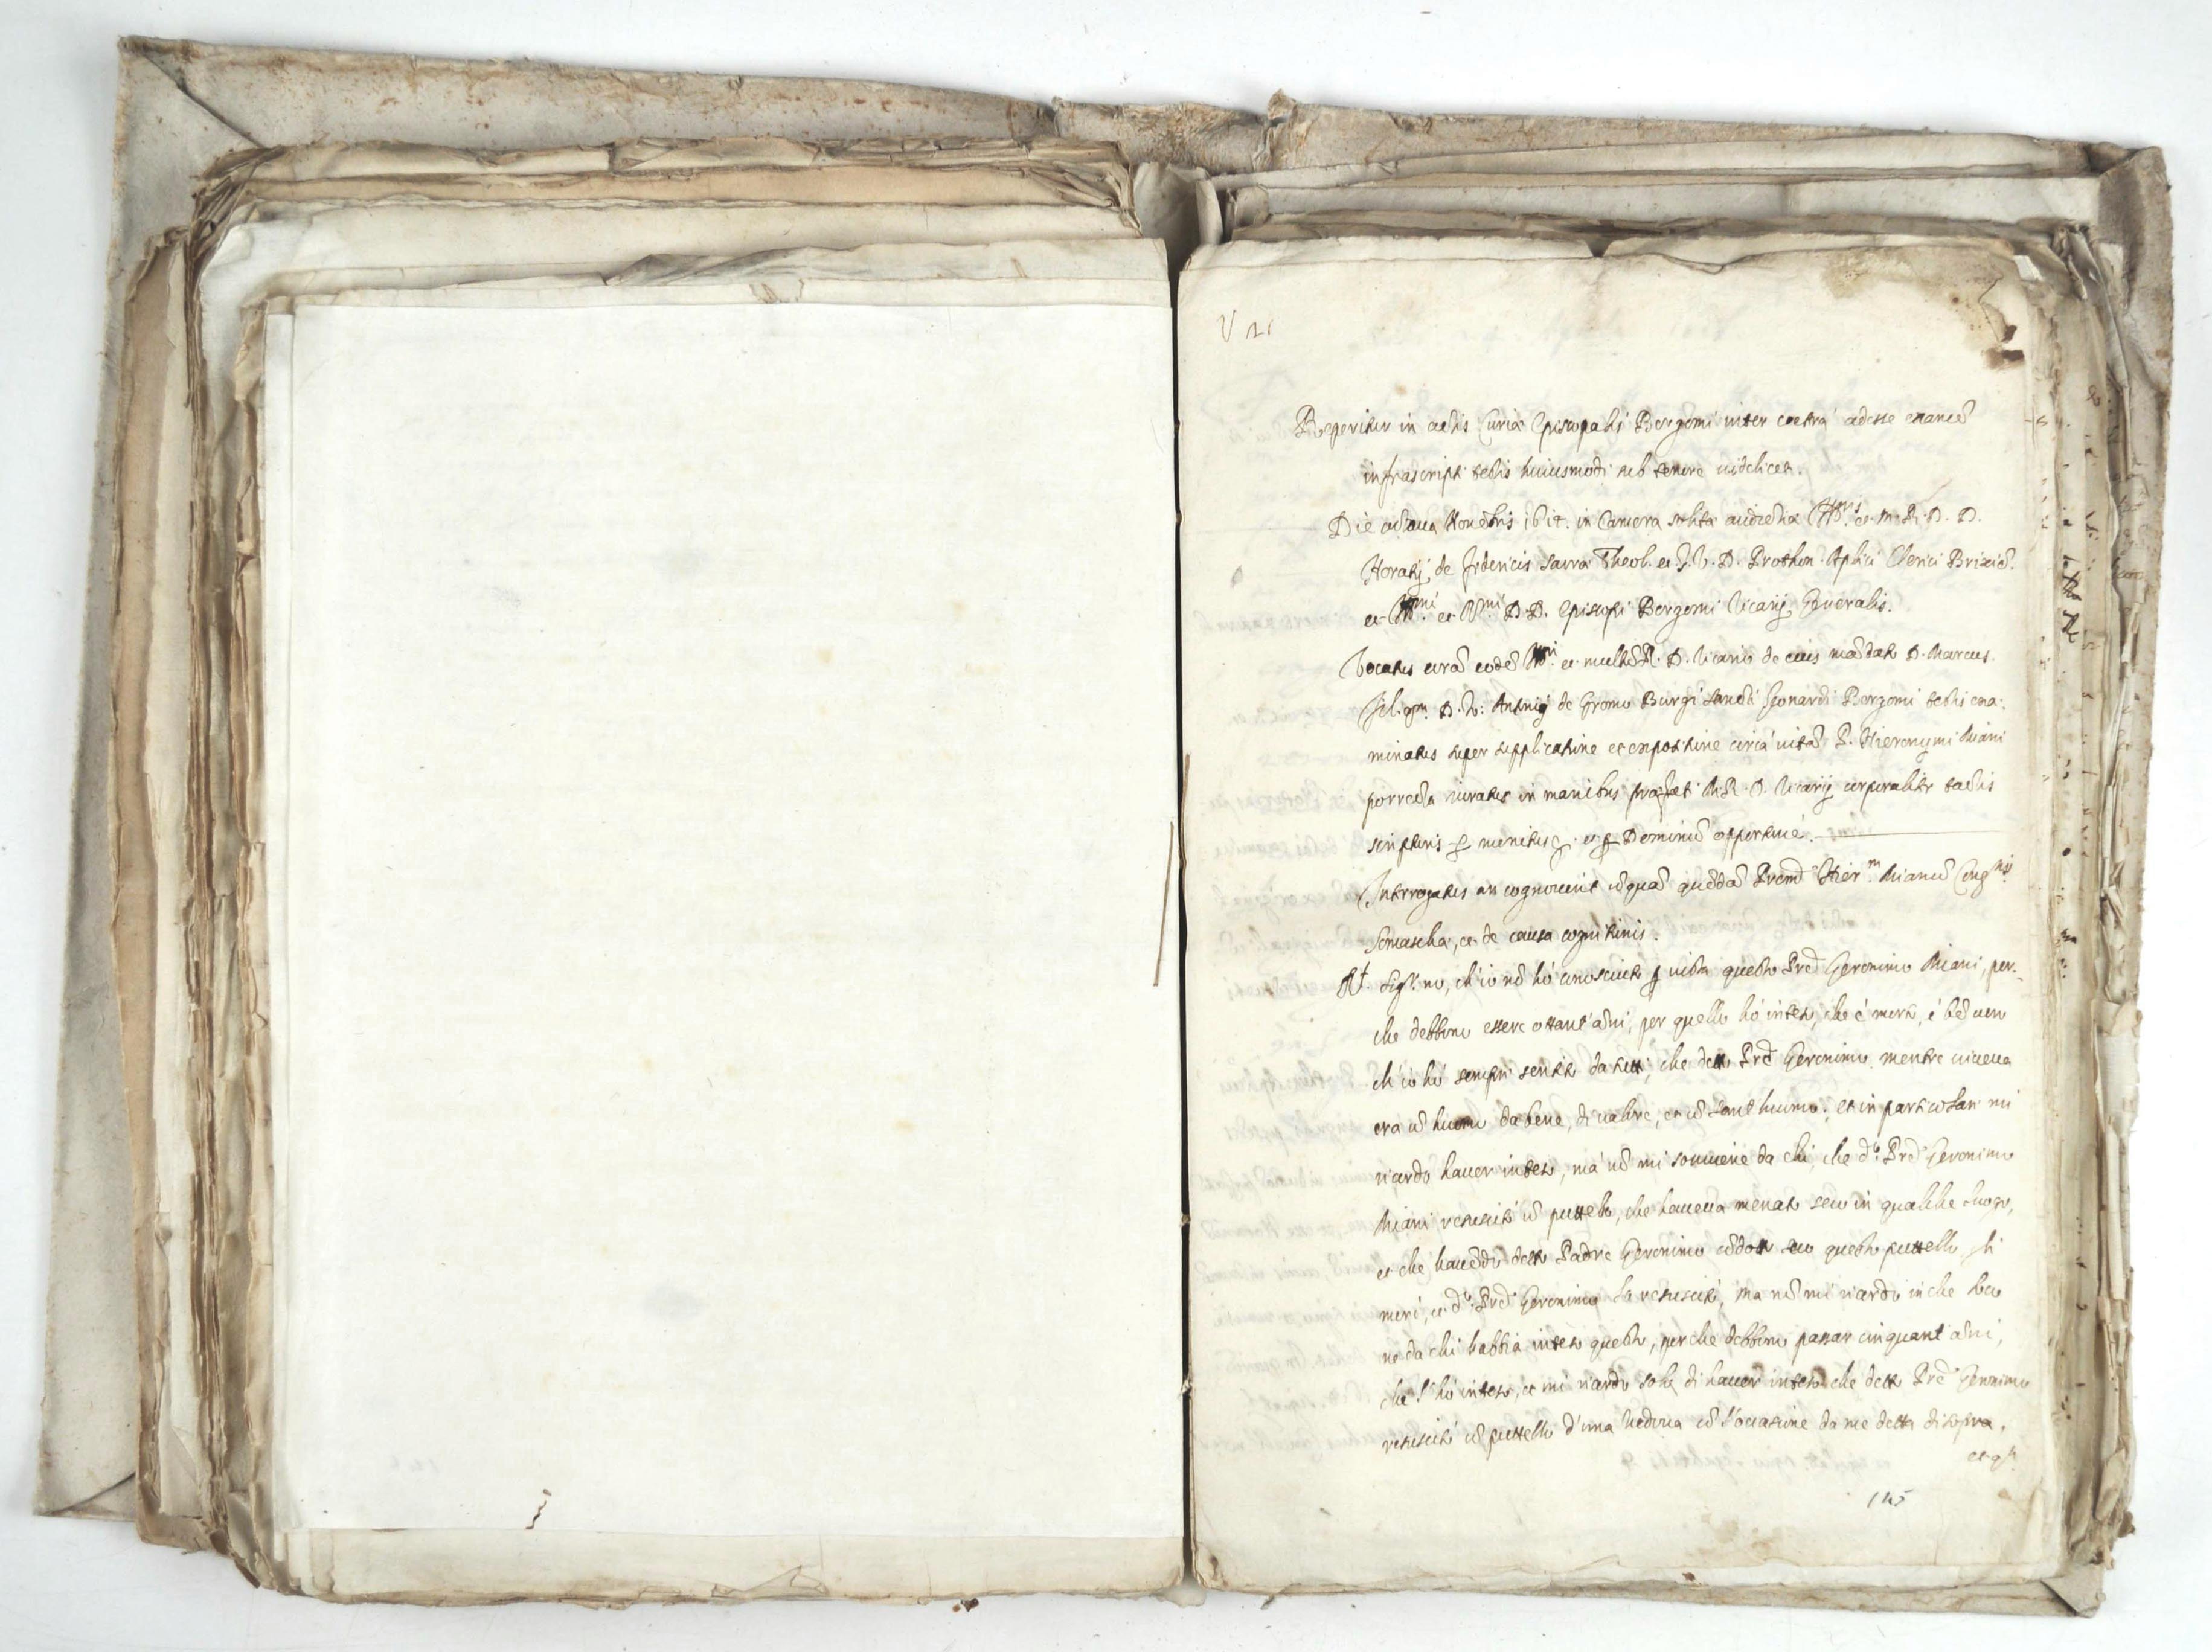 Reperitur in actis Curiæ Episcopalis Bergomi inter cætera adesse examē
infrascripti testis huiusmodi sub tenore uidelicet.
Die octaua Nouēbris 161 in Camera solita audiētiæ Ill.ris et m. R. D. D.
Horatij de federicis sacræ Theol. et J. V. D. Prothon. Aplici Clerici Brixiē.
et Ill.mi et R.mi D. D. Episcopi Bergomi Vicarij Generalis.
Vocatus corā eodē Ill.ri et multū R. D. Vicario de cuius mādato D. Marcus
fil. qm. D. Antonij de Gromo Burgi Sancti Leonardi Bergomi testis exa-
minatus super supplicatione et expositione circa uitā P. Hieronymi Miani
porrecta iuratus in manibus præfati M. R. D. Vicarij corporaliter tactis
scripturis monitus et Dominū opportune.
Interrogatus an cognouerit unquā quēdā Hier.m Mianū Cong.nis
Somaschæ, et de causa cognitionis.
Rt. Sig.r no, ch'io nō hò conosciuto p uista questo Prē Geronimo Miani, per-
che debbono essere ottant'āni, per quello hò inteso, che è morto, è bē uero
ch'io hò sempri sentito da tutti, che detto Prē Geronimo mentre uiueua
era ū huomo da bene, di ualore, et ū sant'huomo; et in particolare mi
ricordo hauer inteso, mà nō mi souuiene da chi, che d.o Prē Geronimo
Miani resuscitò ū puttello, che haueua menato seco in qualche luogo,
et che hauēdo detto Padre Geronimo cōdotto seco questo puttello, li
morì, et d.o Prē Geronimo lo resuscitò, ma nō mi ricordo in che loco
ne da chi habbia inteso questo, perche debbono passar cinquant'āni,
che l'hò inteso, et mi ricordo solo di hauer inteso che detto Prē Geronimo
resuscitò ū puttello d'una Vedoua cō l'occasione da me detta disopra,
et q
145